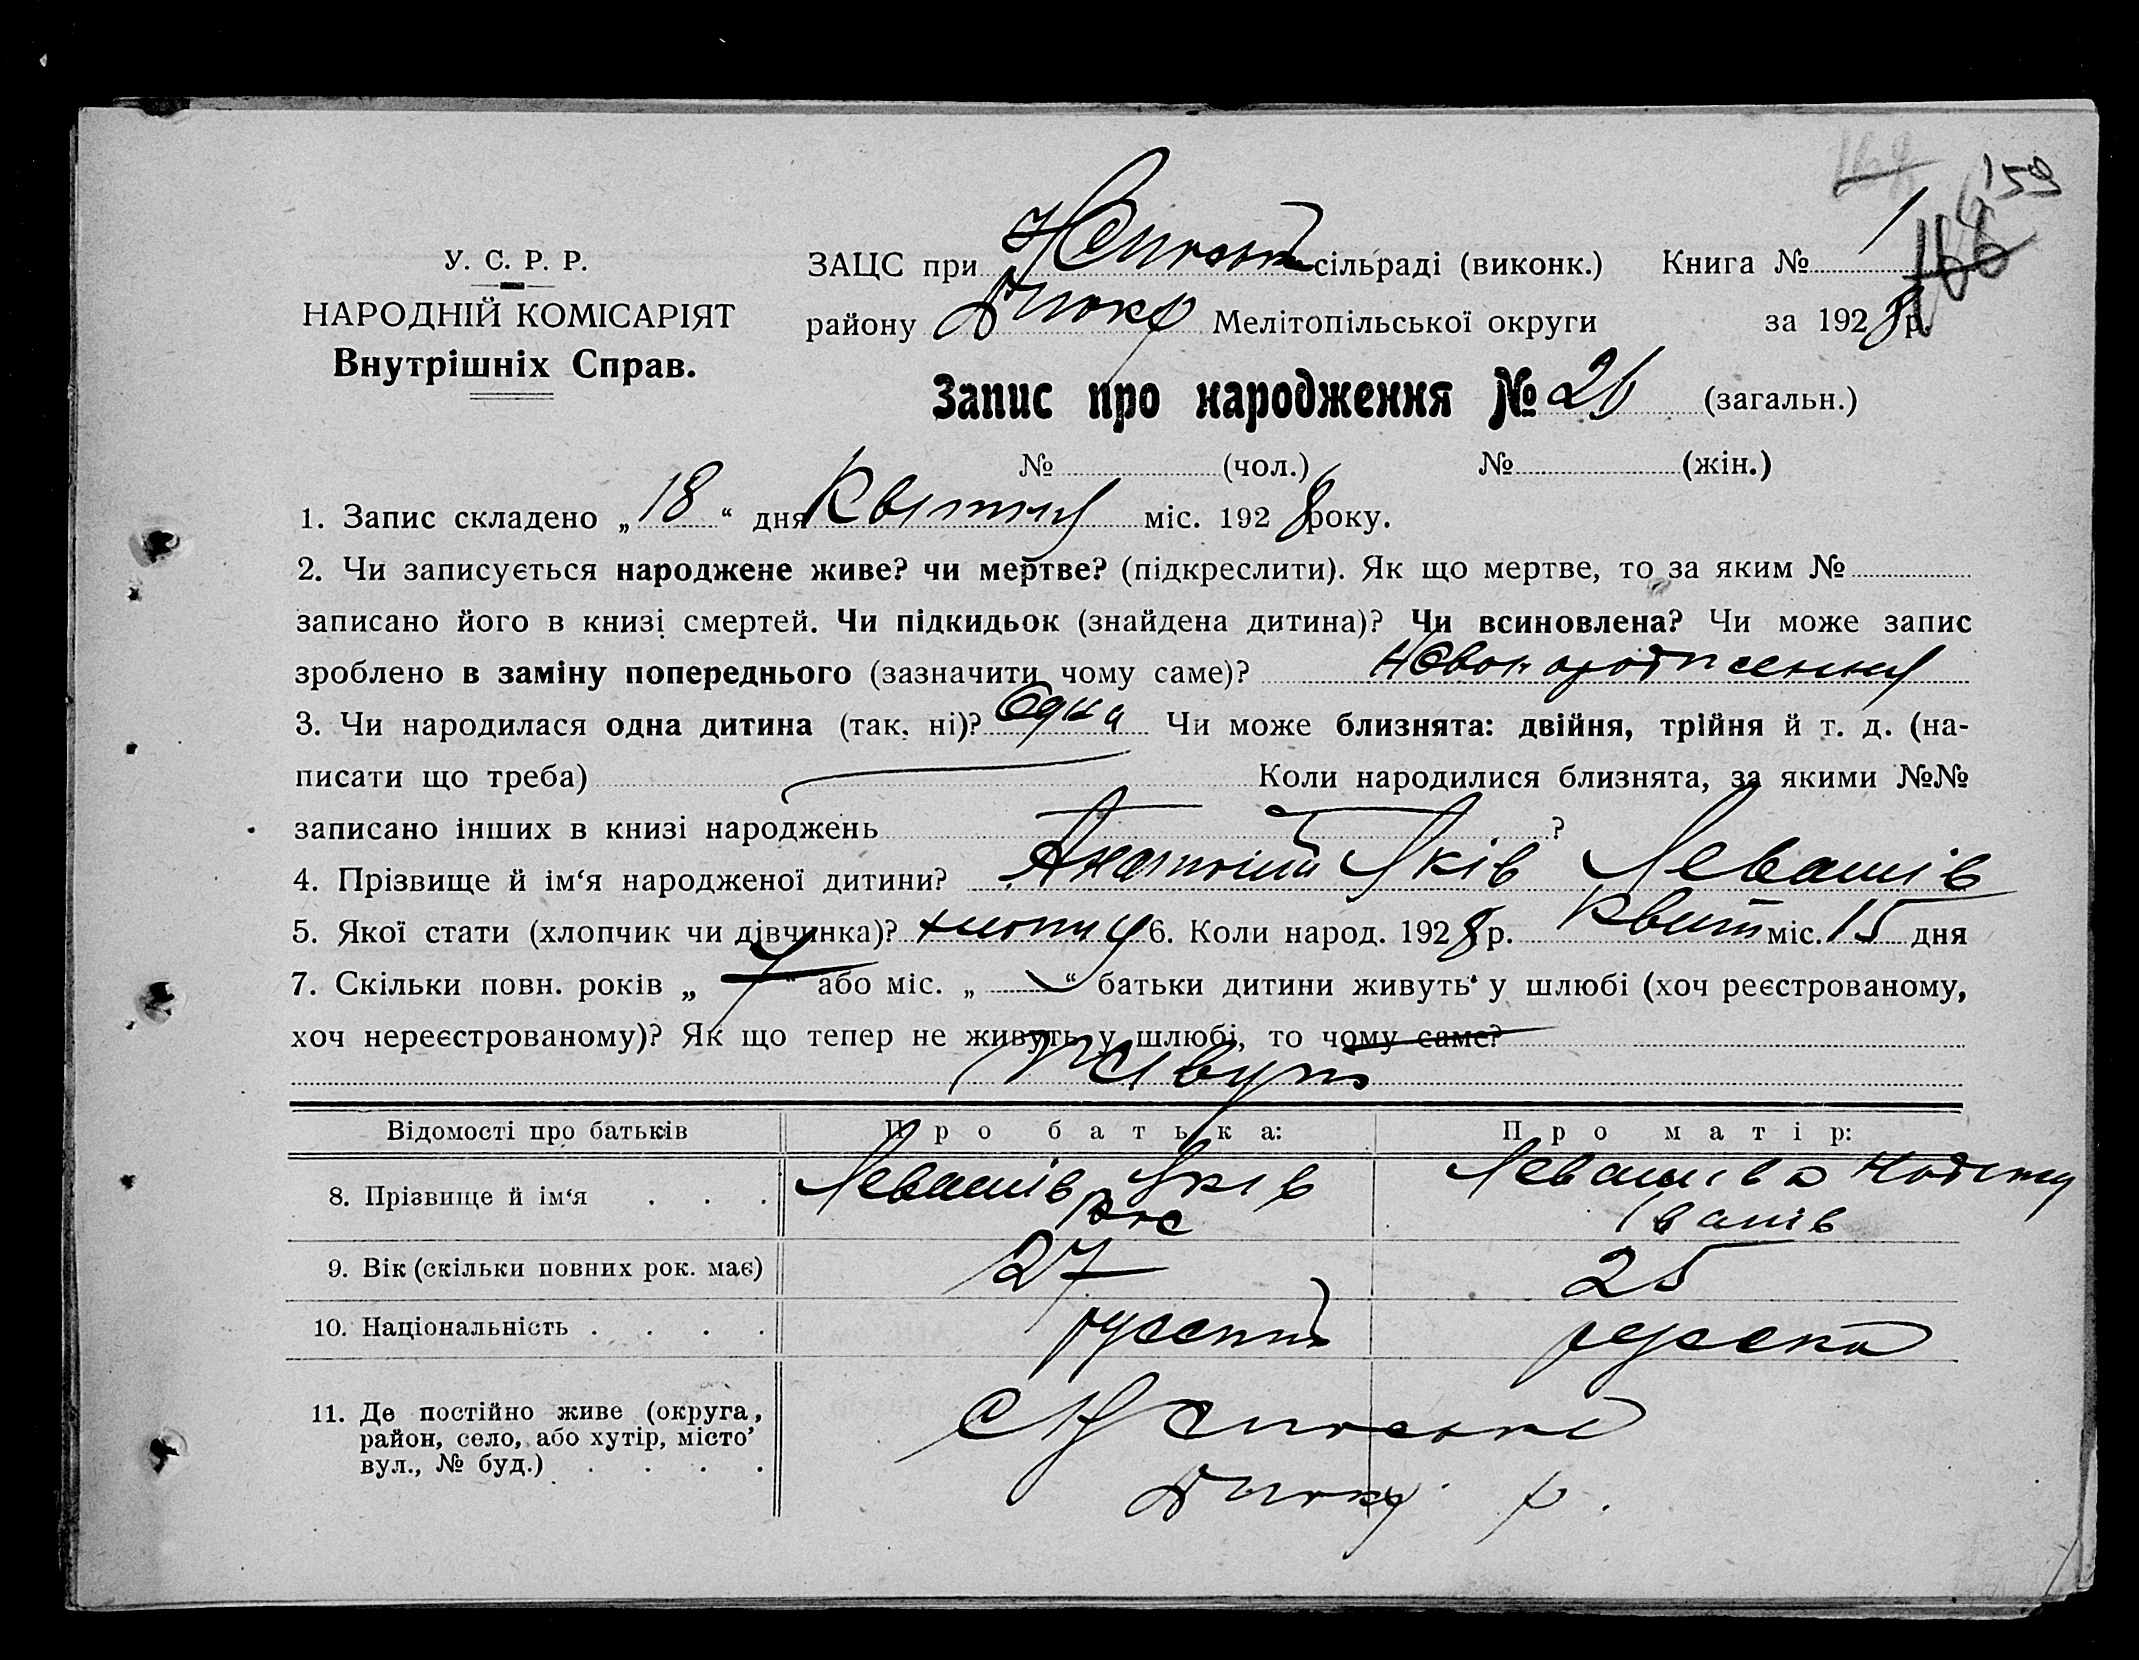 159
У. С. Р. Р.
НАРОДНІЙ КОМІСАРІЯТ
Внутрішніх Справ.
ЗАЦС при сільраді (виконк.) Книга № 1
району Мелітопільської округи за 1928 р.
Запис про народження № 26 (загальн.)
№ (чол.) № (жін.)
1. Запис складено „18“ дня Квітня міс. 1928 року.
2. Чи записується народжене живе? чи мертве? (підкреслити). Як що мертве, то за яким №
записано його в книзі смертей. Чи підкидьок (знайдена дитина)? Чи всиновлена? Чи може запис
зроблено в заміну попереднього (зазначити чому саме)?
3. Чи народилася одна дитина (так, ні)? Одна Чи може близнята: двійня, трійня й т. д. (на-
писати що треба) Коли народилися близнята, за якими №№
записано інших в книзі народжень ?
4. Прізвище й ім‘я народженої дитини? Анатолій Яків Левашів
5. Якої стати (хлопчик чи дівчинка)? хлопчик 6. Коли народ. 1928 р. Квітн міс. 15 дня
7. Скільки повн. років „7“ або міс. „ “ батьки дитини живуть у шлюбі (хоч реєстрованому,
хоч нереєстрованому)? Як що тепер не живуть у шлюбі, то чому саме?
живуть
Відомості про батьків Про батька: Про матір:
8. Прізвище й ім‘я . . . Левашів Яків Левашіва Надежд
Іванів
9. Вік (скільки повних рок. має) 27 25
10. Національність . . . . русский руска
11. Де постійно живе (округа,
район, село, або хутір, місто’
вул., № буд.) . . . .
р.